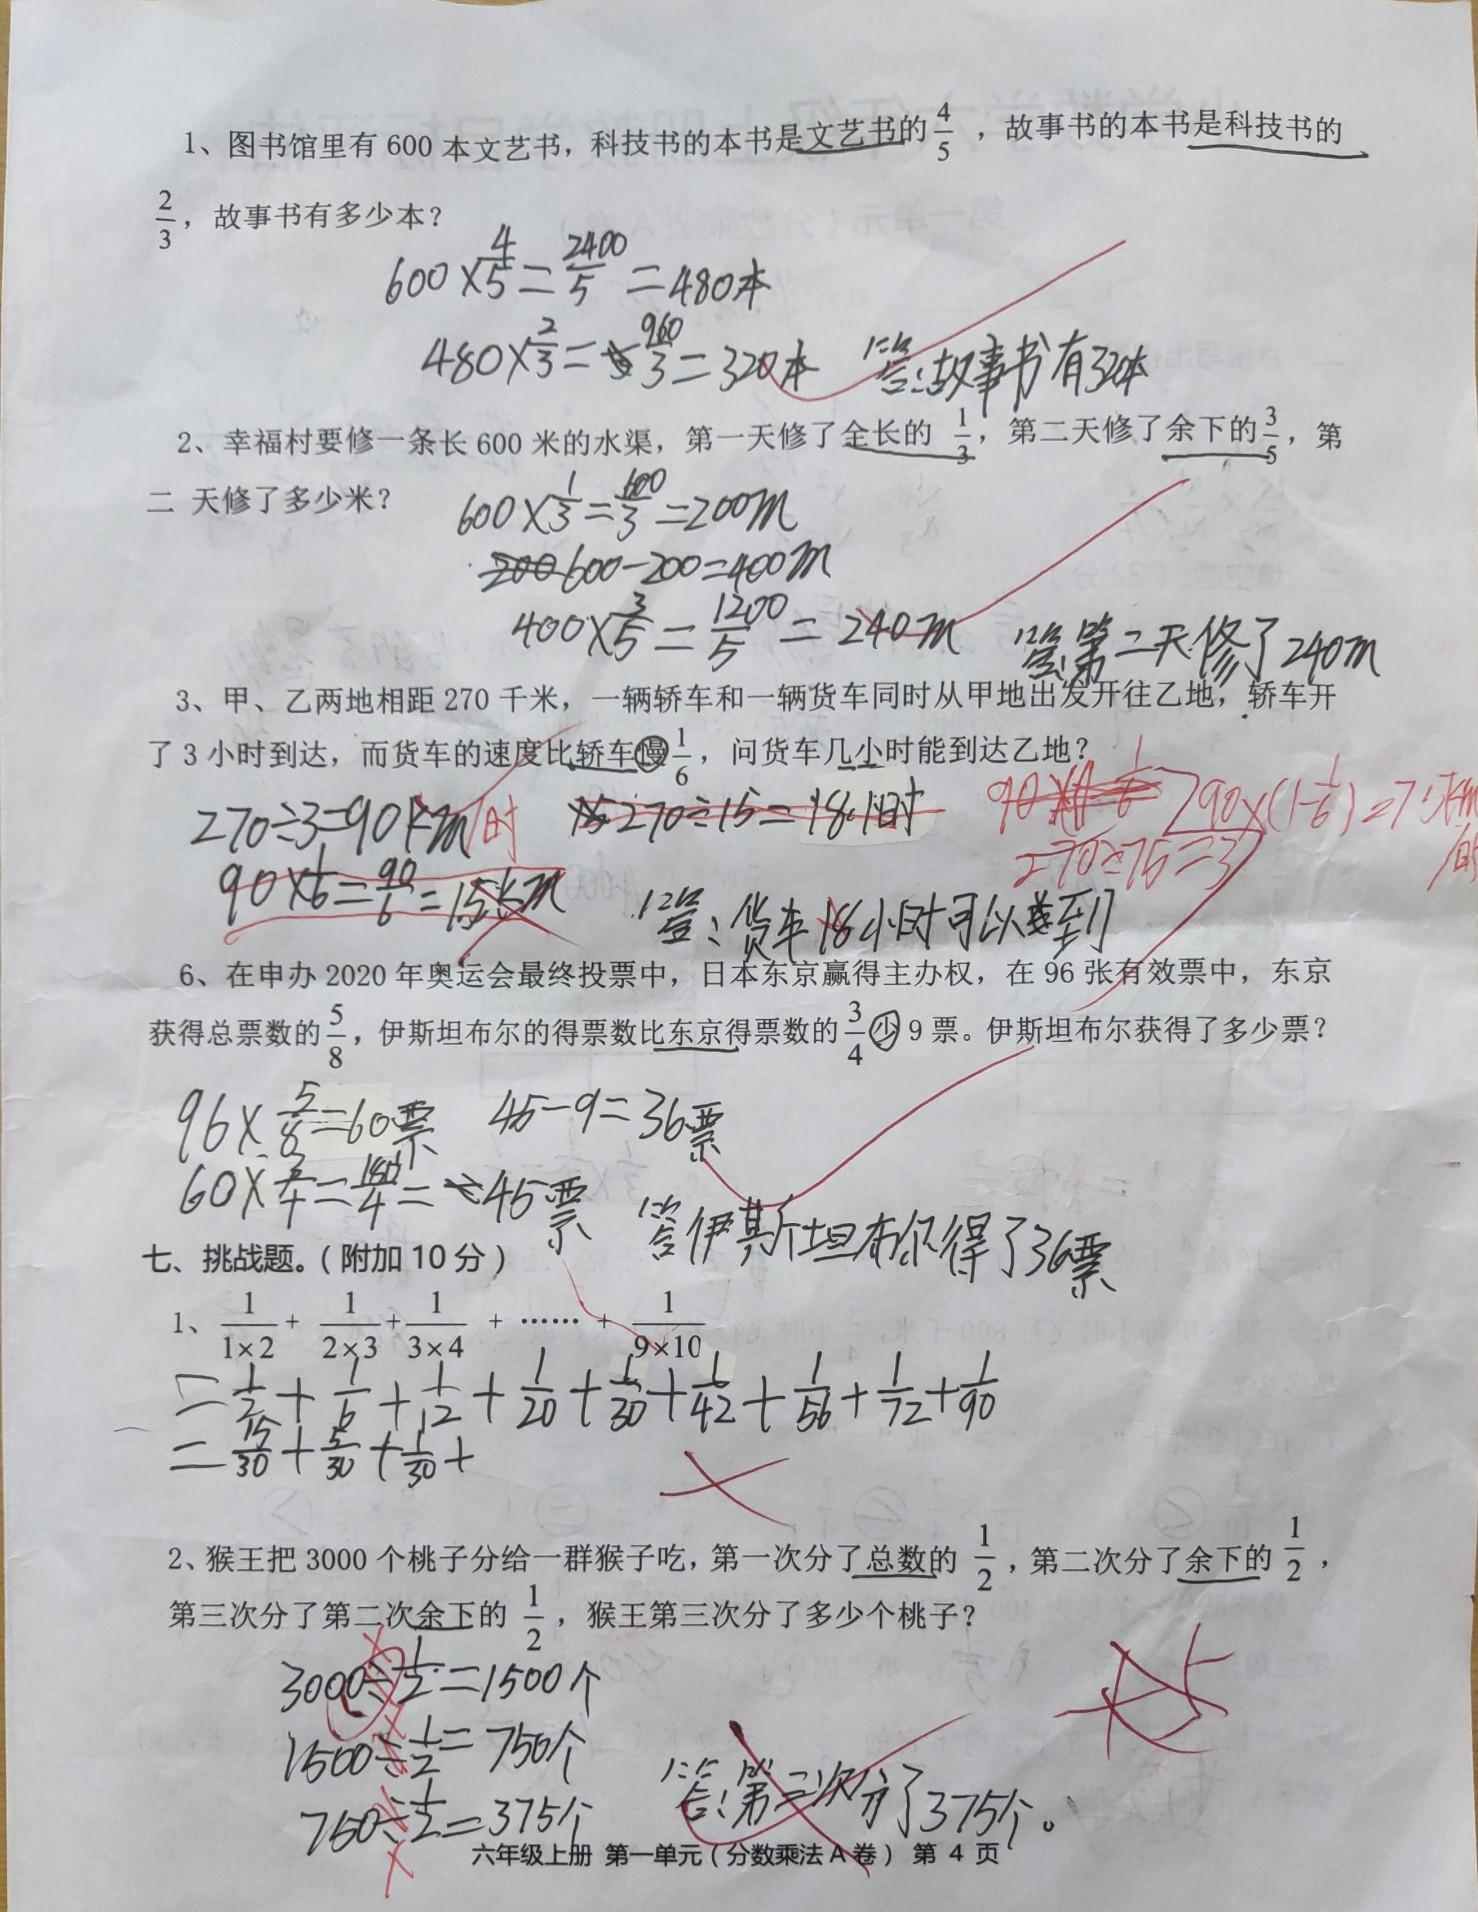 1、图书馆里有 600 本文艺书，科技书的本书是文艺书的 4/5 ，故事书的本书是科技书的
2/3 ，故事书有多少本？
600×4/5=2400/5=480本
480×2/3=960/3=320本 答:故事书有320本
2、幸福村要修一条长 600 米的水渠，第一天修了全长的 1/3，第二天修了余下的 3/5，第
二 天修了多少米？
600×1/3=600/3=200m
200 600-200=400m
400×3/5=1200/5=240m 答:第二天修了240m
3、甲、乙两地相距 270 千米，一辆轿车和一辆货车同时从甲地出发开往乙地，轿车开
了 3 小时到达，而货车的速度比轿车慢 1/6 ，问货车几小时能到达乙地？
270÷3=90km/时 270÷15=18小时 90×(1-1/6)=75km/时
90×1/6=90/6=15km 270÷75=3
答:货车18小时可以到
6、在申办 2020 年奥运会最终投票中，日本东京赢得主办权，在 96 张有效票中，东京
获得总票数的 5/8 ，伊斯坦布尔的得票数比东京得票数的 3/4 少 9 票。伊斯坦布尔获得了多少票？
96×5/8=60票 45-9=36票
60×3/4=180/4=45票 答伊斯坦布尔得了36票
七、挑战题。（附加 10 分）
1、 1/(1×2) + 1/(2×3) + 1/(3×4) + …… + 1/(9×10)
=1/2+1/6+1/12+1/20+1/30+1/42+1/56+1/72+1/90
=15/30+5/30+1/30+
2、猴王把 3000 个桃子分给一群猴子吃，第一次分了总数的 1/2 ，第二次分了余下的 1/2 ，
第三次分了第二次余下的 1/2 ，猴王第三次分了多少个桃子？
3000÷1/2=1500个
1500÷1/2=750个
750÷1/2=375个 答:第三次分了375个。
六年级上册 第一单元（分数乘法 A 卷） 第 4 页